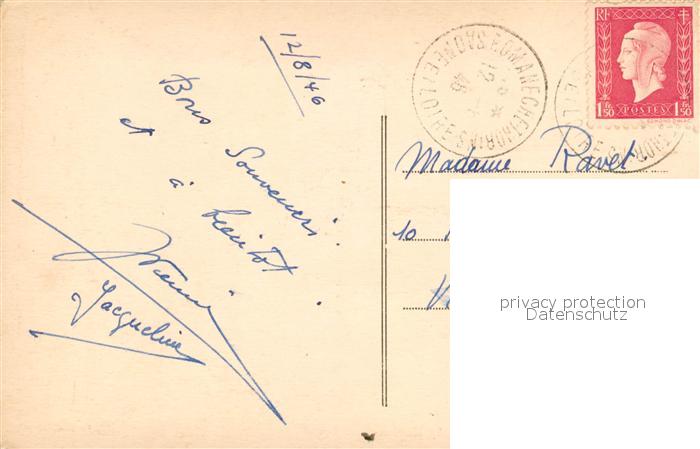 12/8/46
Bons Souvenirs.
et à bientôt.
Jacqueline
ROMANECHE THORINS SAONE ET LOIRE
12 - 8
46
RF
1 fr 50 POSTES 1 fr 50
Madame Ravet
10
privacy protection
Datenschutz